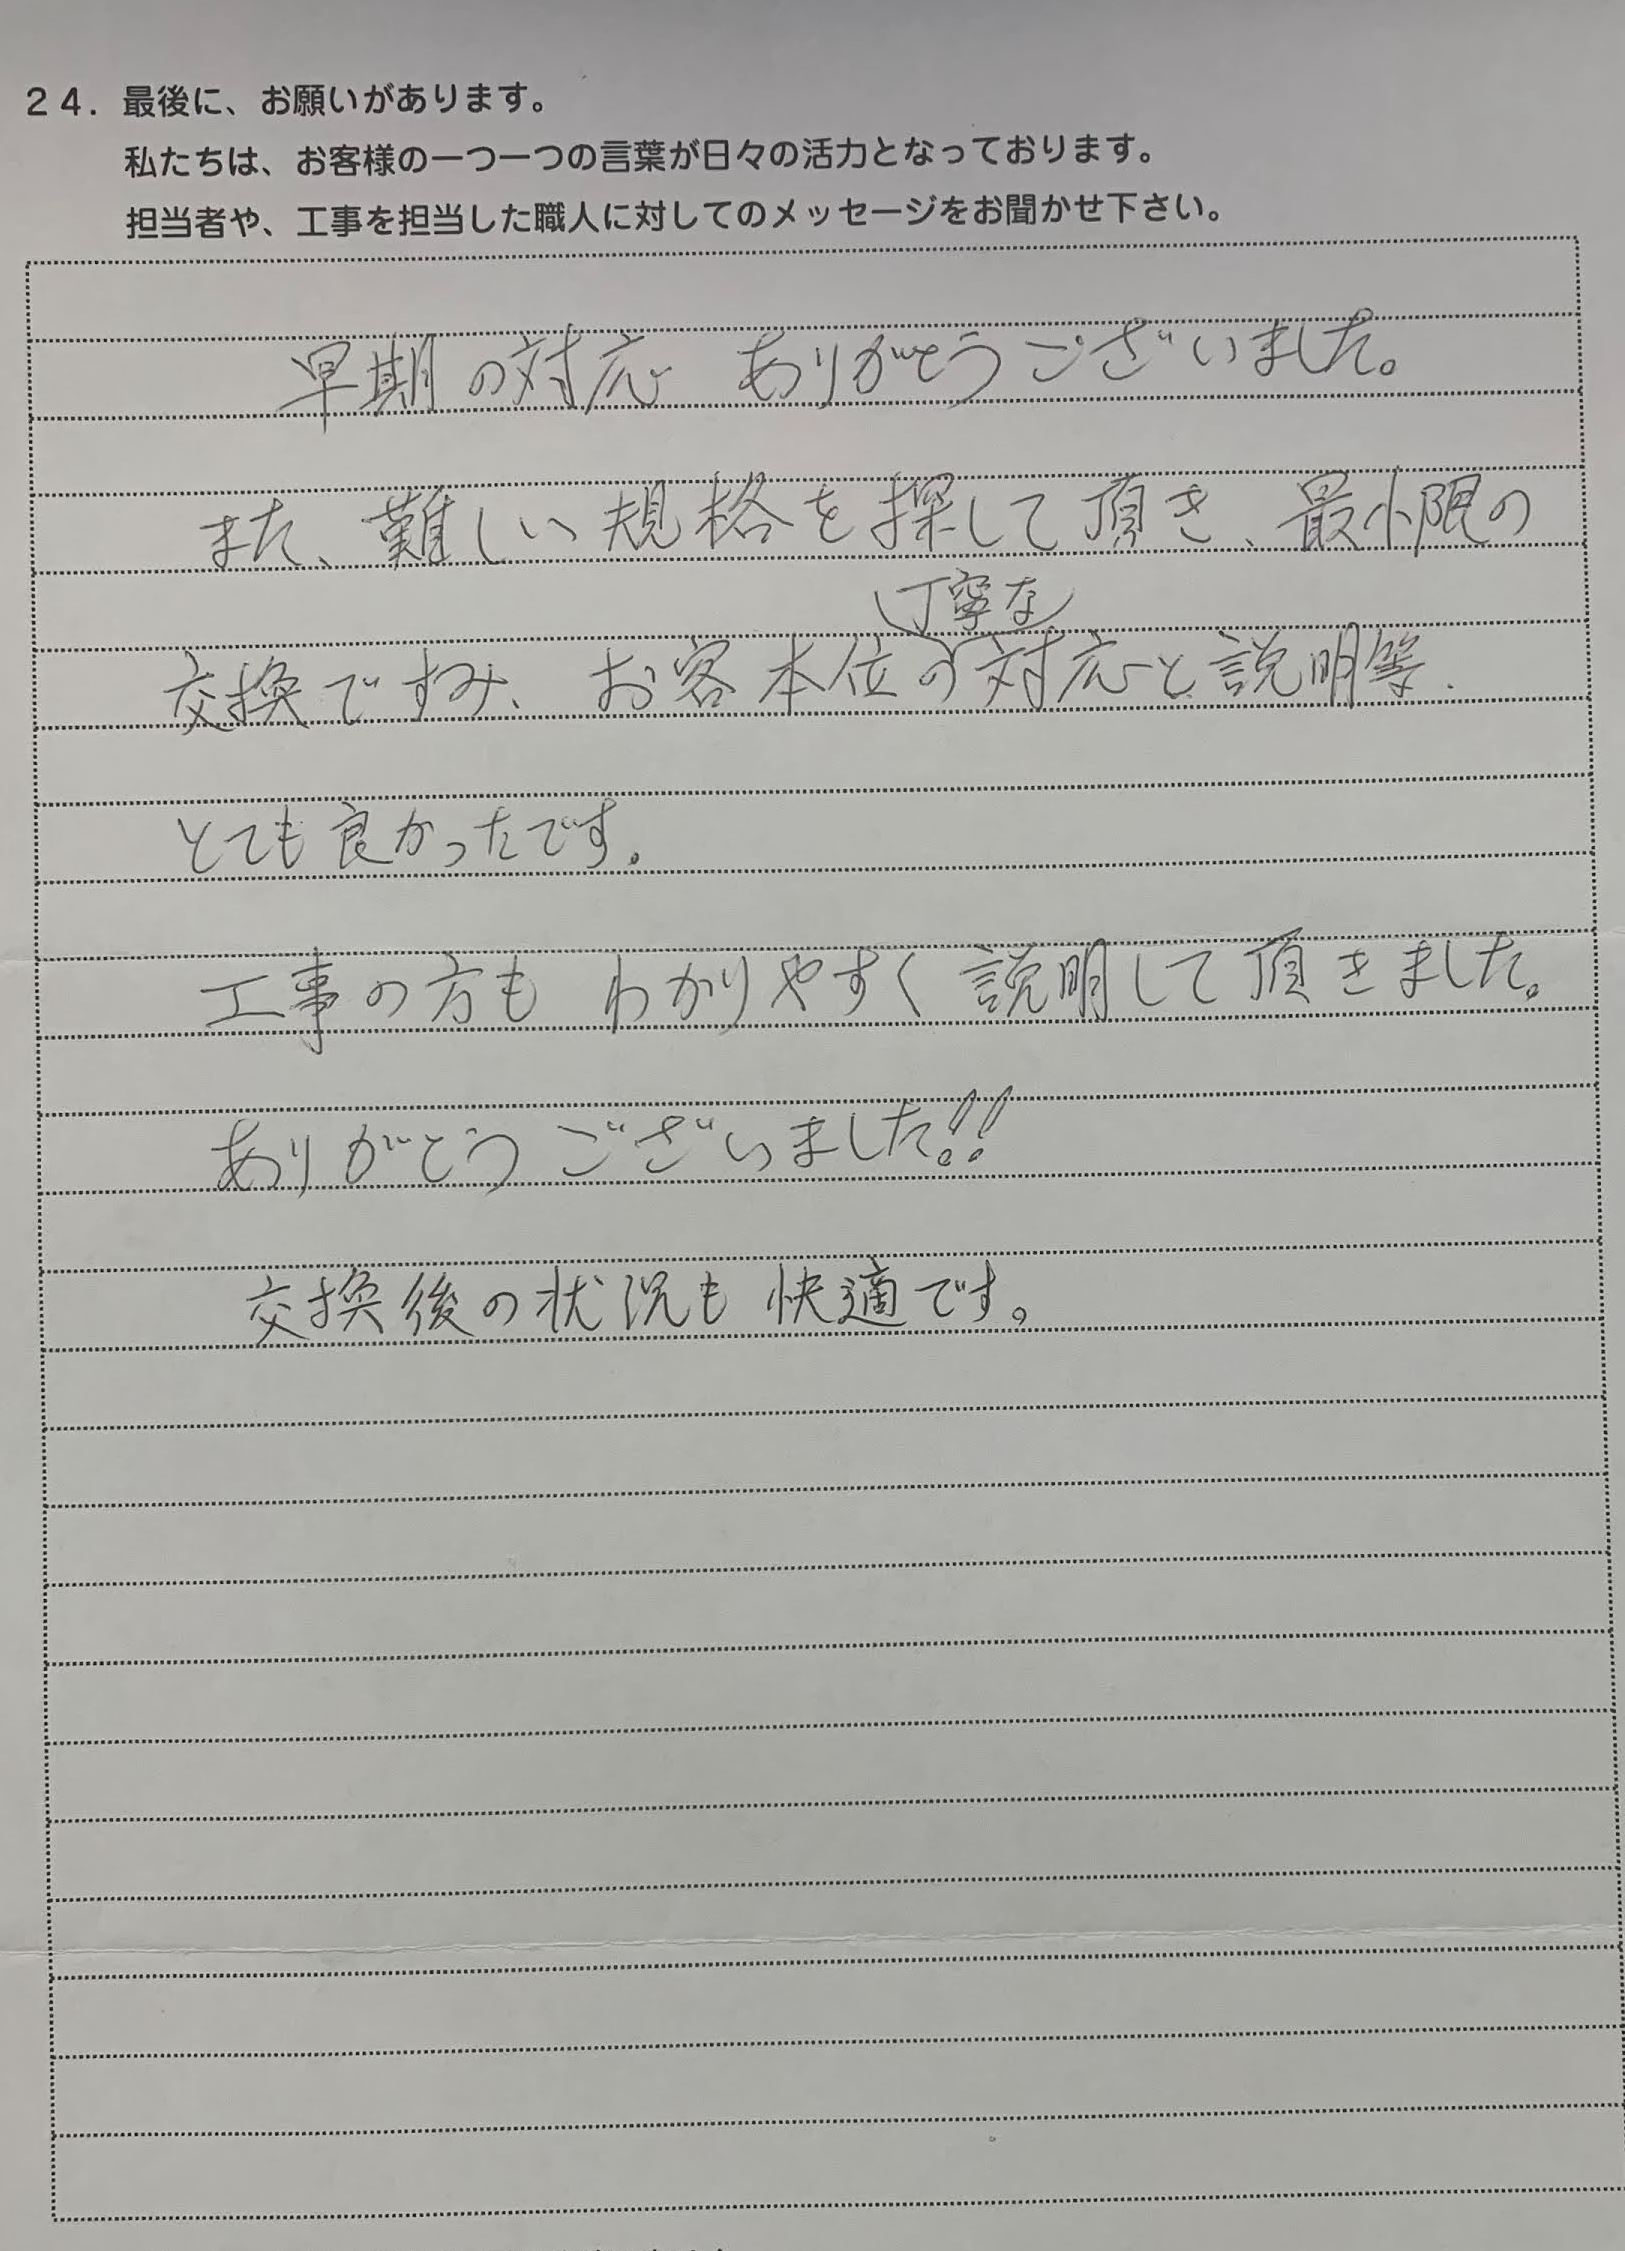 24. 最後に、お願いがあります。
私たちは、お客様の一つ一つの言葉が日々の活力となっております。
担当者や、工事を担当した職人に対してのメッセージをお聞かせ下さい。
早期の対応 ありがとうございました。
また、難しい規格を探して頂き、最小限の
丁寧な
交換ですみ、お客本位の対応と説明等、
とても良かったです。
工事の方も わかりやすく説明して頂きました。
ありがとうございました!!
交換後の状況も快適です。